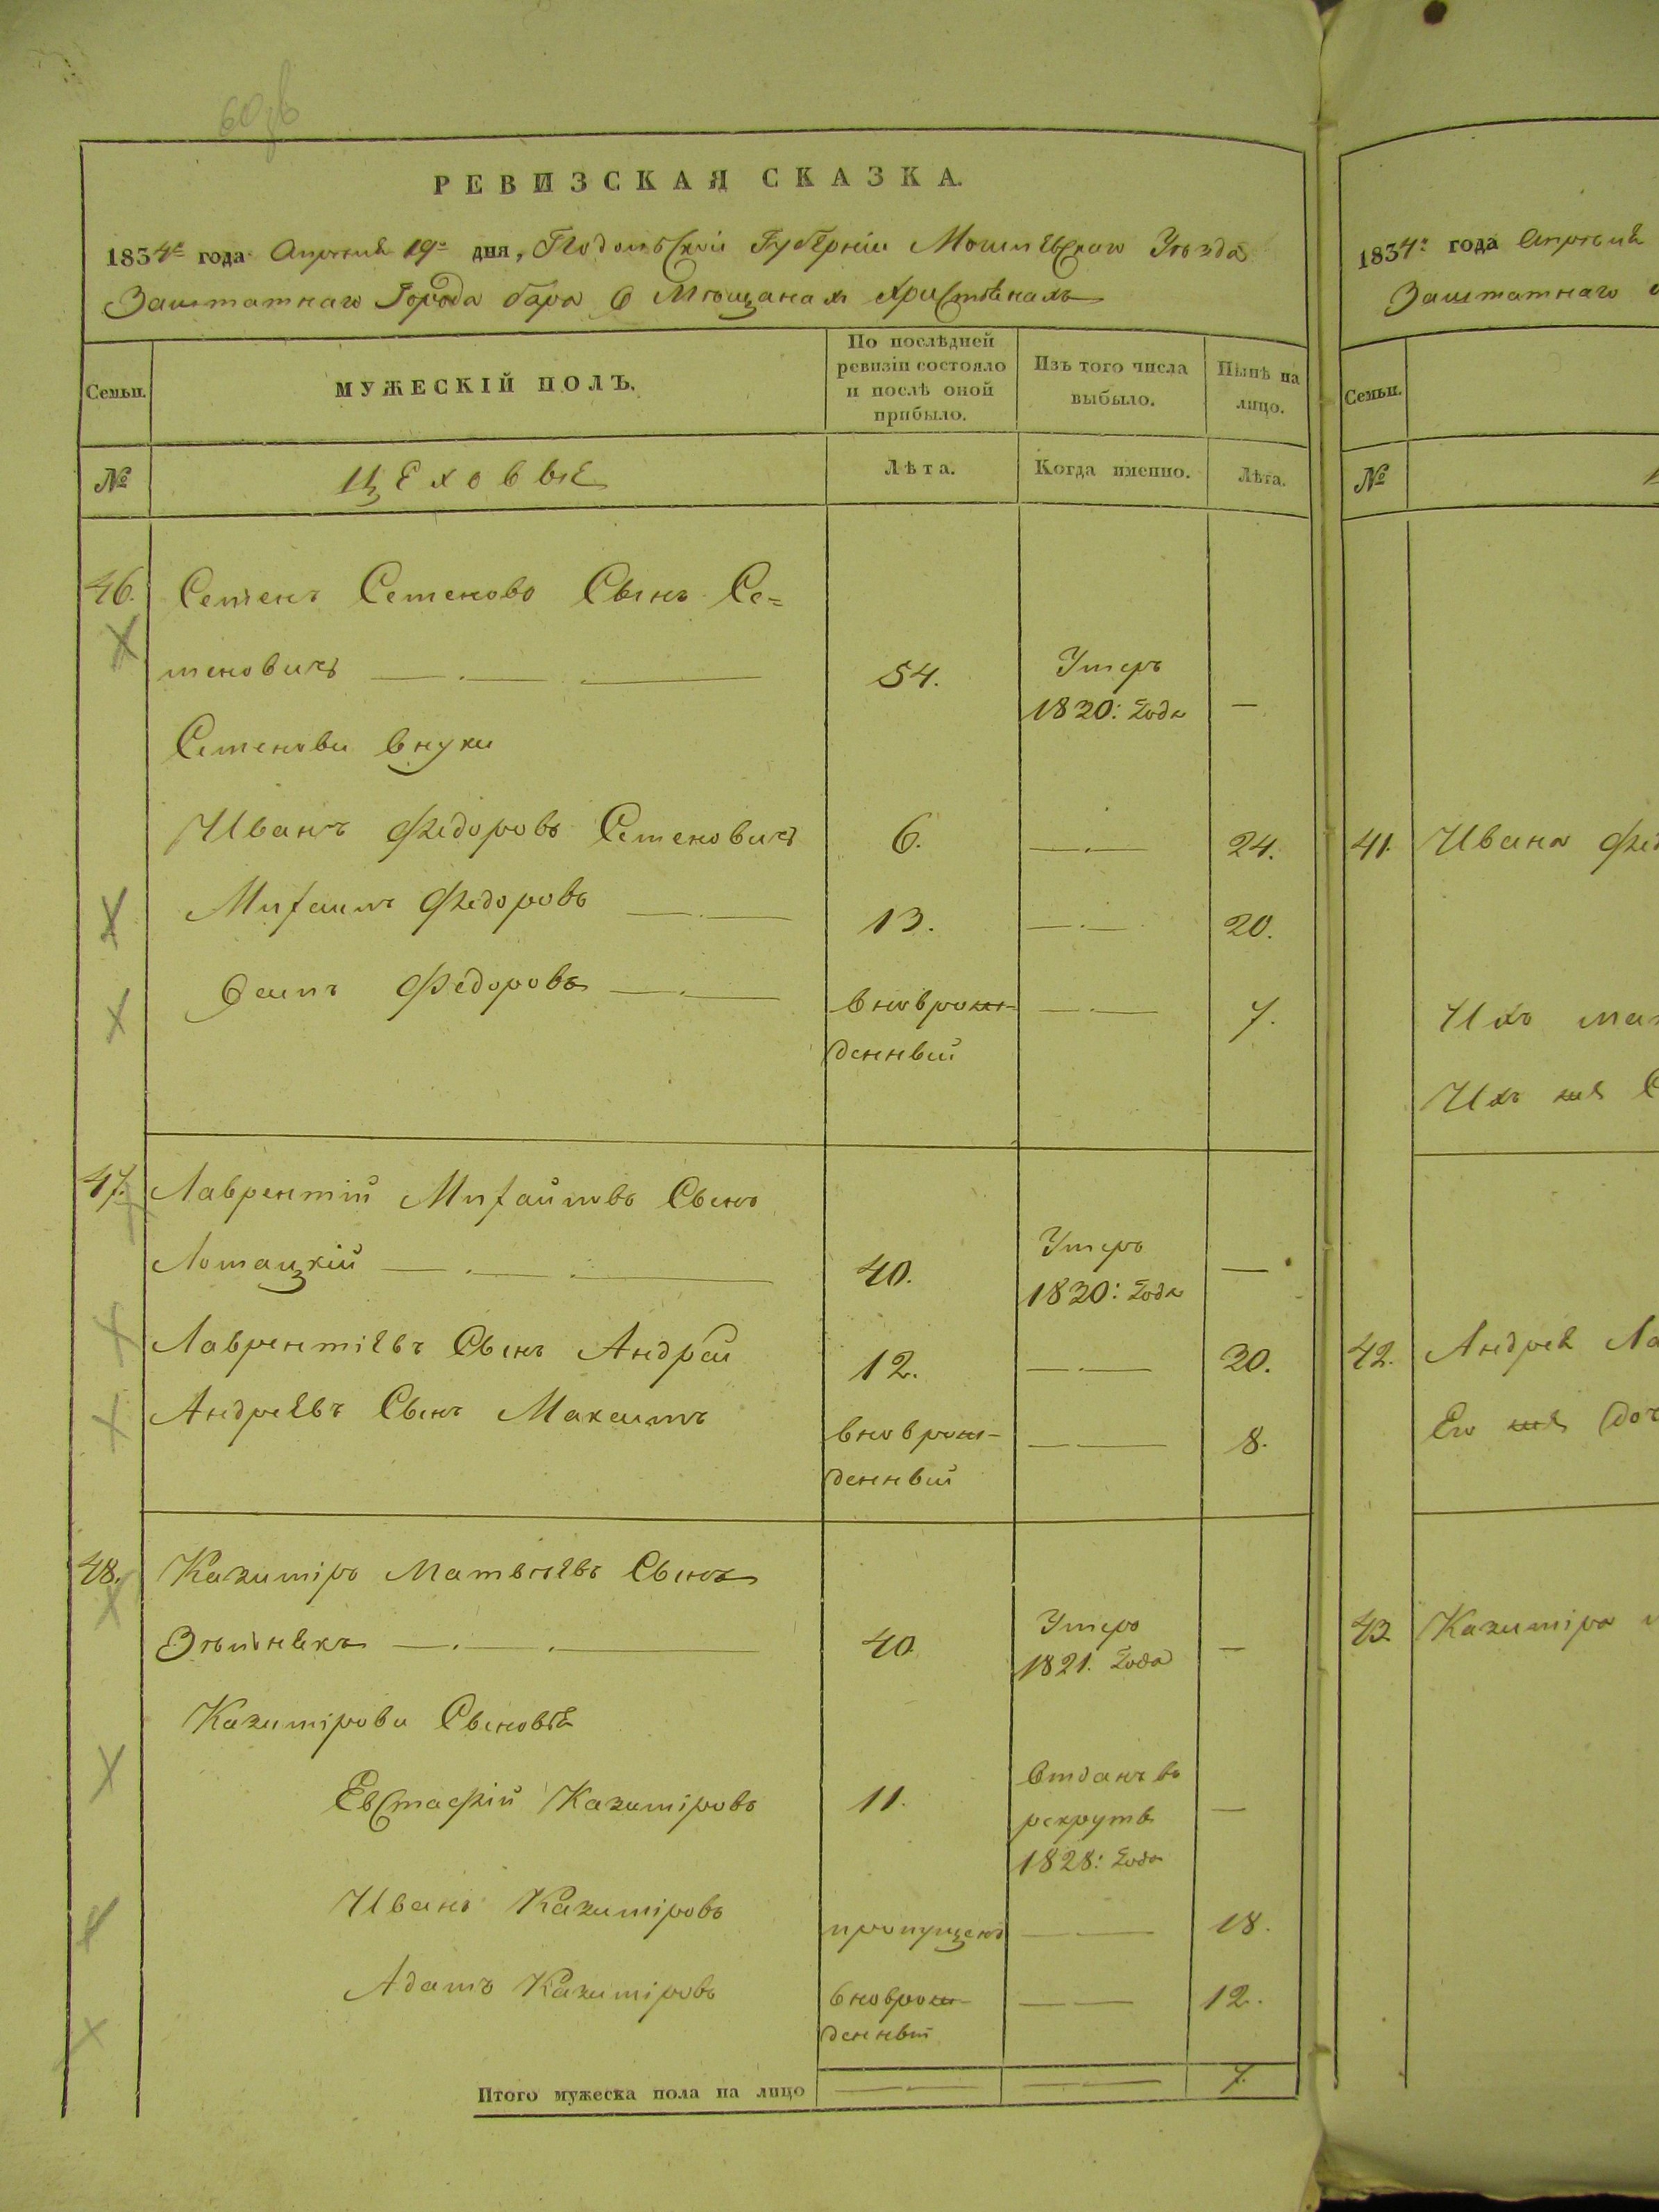 60зв
РЕВИЗСКАЯ СКАЗКА.
1834го года Апреля 19го дня, Подольской Губерніи Могилевскаго Уѣзда
Заштатнаго Города бара О Мѣщанахъ Христіянахъ
Семьи.
МУЖЕСКІЙ ПОЛЪ.
По послѣдней
ревизіи состояло
и послѣ оной
прибыло.
Изъ того числа
выбыло.
Нынѣ на
лицо.
№
Цеховые
Лѣта.
Когда именно.
Лѣта.
46. Семенъ Семеновъ Сынъ Се=
меновичъ — . — . — 54. Умеръ
1820: года —
Семенови внуки
Иванъ Федоровъ Семеновичъ 6. — . — 24.
Михаилъ Федоровъ — . — 13. — . — 20.
Федоровъ — . — вноврож- — . — 7.
денный
47. Лаврентій Михайловъ Сынъ
Лотацкій — . — . — 40. Умеръ
1820: года —
Лаврентіевъ Сынъ Андрей 12. — . — 20.
Андреевъ Сынъ Максимъ вноврож- — — 8.
денный
48. Казиміръ Матвѣевъ Сынъ
— . — . — 40 Умеръ
1821. года —
Казимірови Сыновья
Евстафій Казиміровъ 11. Отданъ въ
рекруты —
1828: года
Иванъ Казиміровъ пропущенъ — — 18.
Адамъ Казиміровъ вноврож- — — 12.
денный
Итого мужеска пола на лицо — . — — . — 7.
1834: года Апреля
Заштатнаго
Семьи.
№
41. Ивана Фед
Ихъ
Ихъ же
42. Андрея Ла
Его же доч
43. Казиміра